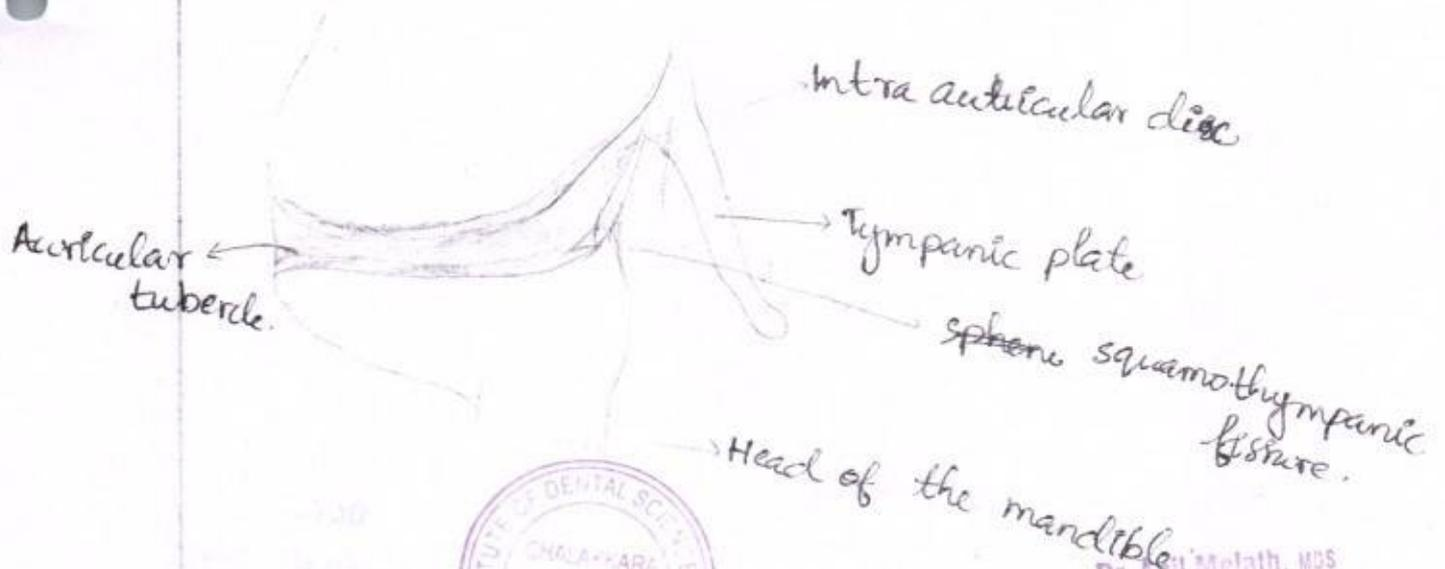 Intra auticular disc
Auricular
tubercle.
Tympanic plate
spheno squamothympanic
fissure.
Head of the mandible
TUTE OF DENTAL SCIEN
CHALAKKARA
Melath, MDS